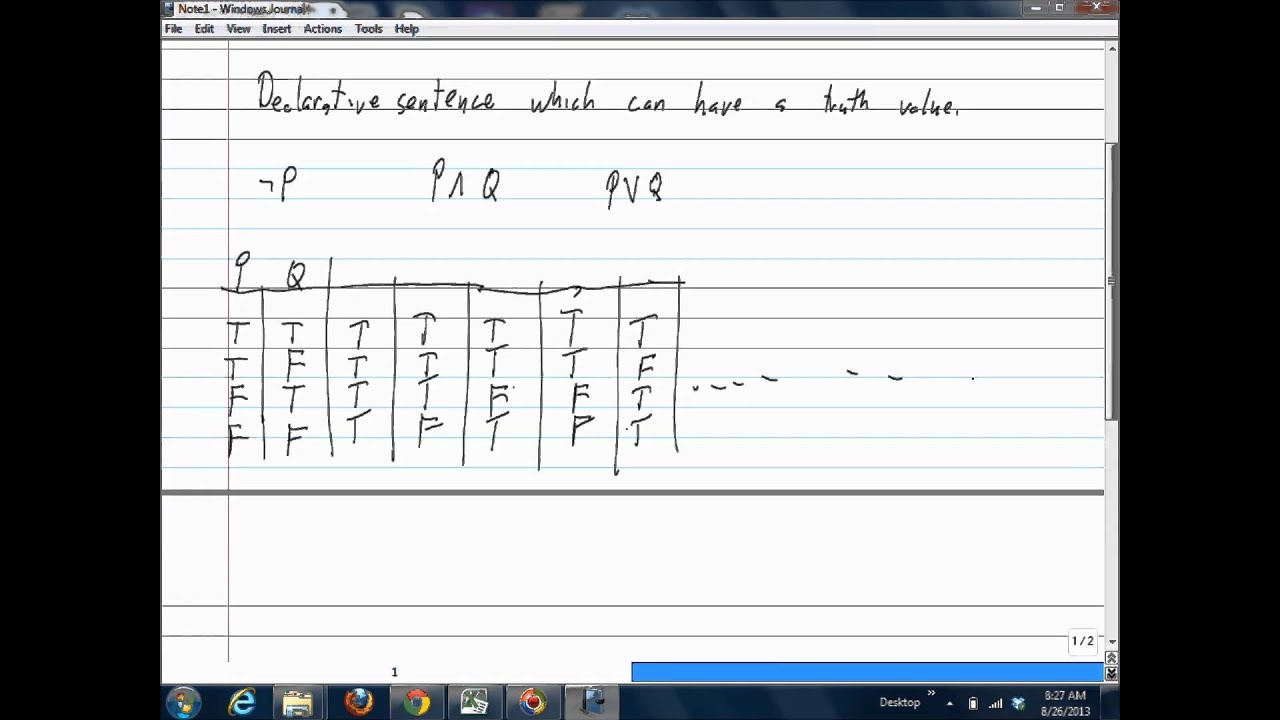 Note1 - Windows Journal
File Edit View Insert Actions Tools Help
Declarative sentence which can have a truth value.
¬P P∧Q P∨Q
P Q
T T T T T T T
T F T T T T F
F T T T F F T
F F T F T F T
1/2
1
Desktop » 8:27 AM
8/26/2013